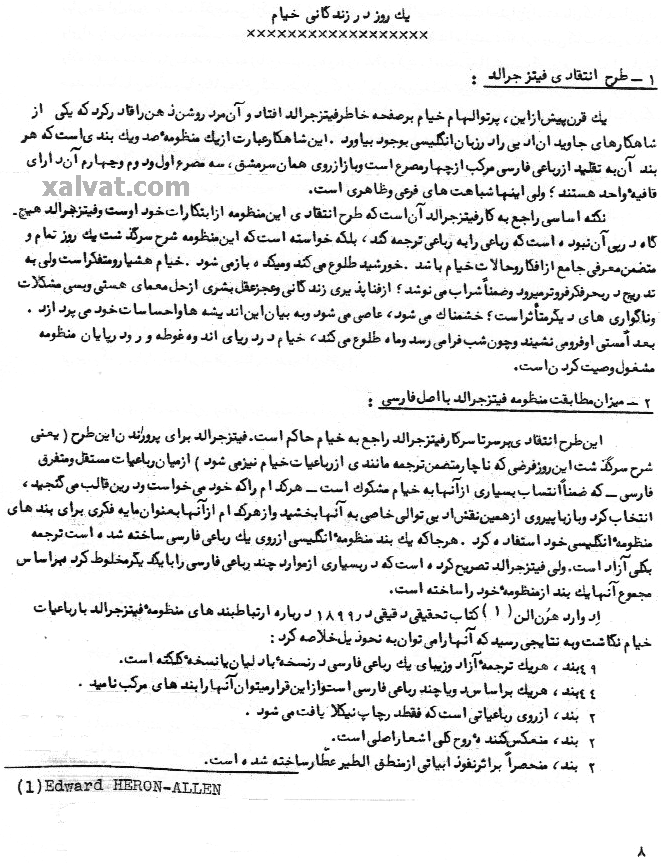 یك روز در زندگانی خیام
××××××××××××××××××
۱ - طرح انتقادی فیتز جرالد :
یك قرن پیش از این ، پرتو الهام خیام بر صفحه خاطر فیتز جرالد افتاد و آن مرد روشن ذهن را قادر کرد که یکی از
شاهکارهای جاوید ان ادبی را در زبان انگلیسی بوجود بیاورد . این شاهکار عبارت از یك منظومهٔ صد و یك بندی است که هر
بند آن به تقلید از رباعی فارسی مرکب از چهار مصرع است و باز از روی همان سرمشق ، سه مصرع اول و دوم و چهارم آن دارای
قافیهٔ واحد هستند ؛ ولی اینها شباهت های فرعی و ظاهری است.
xalvat.com
نکته اساسی راجع به کار فیتز جرالد آن است که طرح انتقادی این منظومه از ابتکارات خود اوست و فیتز جرالد هیچ-
گاه در پی آن نبوده است که رباعی را به رباعی ترجمه کند ، بلکه خواسته است که این منظومه شرح سرگذشت یك روز تمام و
متضمن معرفی جامع از افکار و حالات خیام باشد . خورشید طلوع می کند و میکده باز می شود . خیام هشیار و متفکر است ولی به
تدریج در بحر فکر فروتر میرود و ضمناً شراب می نوشد ؛ از فنا پذیری زندگانی و عجز عقل بشری از حل معمای هستی و بسی مشکلات
و ناگواری های دیگر متأثر است ؛ خشمناك می شود ، عاصی می شود و به بیان این اندیشه ها و احساسات خود می پردازد .
بعد آ مستی او فرو می نشیند و چون شب فرا می رسد و ماه طلوع می کند ، خیام در دریای اندوه غوطه ور و در پایان منظومه
مشغول وصیت کردن است.
۲ - میزان مطابقت منظومه فیتز جرالد با اصل فارسی :
این طرح انتقادی بر سرتاسر کار فیتز جرالد راجع به خیام حاکم است. فیتز جرالد برای پروراندن این طرح ( یعنی
شرح سرگذشت این روز فرضی که ناچار متضمن ترجمه مانندی از رباعیات خیام نیز می شود ) از میان رباعیات مستقل و متفرق
فارسی - که ضمناً انتساب بسیاری از آنها به خیام مشکوك است - هر کدام را که خود می خواست و در این قالب می گنجید ،
انتخاب کرد و باز با پیروی از همین نقش ادبی توالی خاصی به آنها بخشید و از هر کدام از آنها بعنوان مایه فکری برای بند های
منظومهٔ انگلیسی خود استفاده کرد . هر جا که یك بند منظومهٔ انگلیسی از روی یك رباعی فارسی ساخته شده است ترجمه
بکلی آزاد است. ولی فیتز جرالد تصریح کرده است که در بسیاری از موارد چند رباعی فارسی را با یکدیگر مخلوط کرده و بر اساس
مجموع آنها یك بند از منظومهٔ خود را ساخته است.
ادوارد هرن الن (۱) کتاب تحقیقی دقیقی در ۱۸۹۹ درباره ارتباط بند های منظومهٔ فیتز جرالد با رباعیات
خیام نگاشت و به نتایجی رسید که آنها را می توان به نحو ذیل خلاصه کرد :
۴۹ بند ، هر یك ترجمهٔ آزاد و زیبای یك رباعی فارسی در نسخهٔ بادلیان یا نسخهٔ کلکته است.
۴۴ بند ، هر یك بر اساس دو یا چند رباعی فارسی است و از این قرار میتوان آنها را بند های مرکب نامید .
۲ بند ، از روی رباعیاتی است که فقط در چاپ نیکلا یافت می شود .
۲ بند ، منعکس کنندهٔ روح کلی اشعار اصلی است.
۲ بند ، منحصراً بر اثر نفوذ ابیاتی از منطق الطیر عطّار ساخته شده است.
(1) Edward HERON-ALLEN
۸